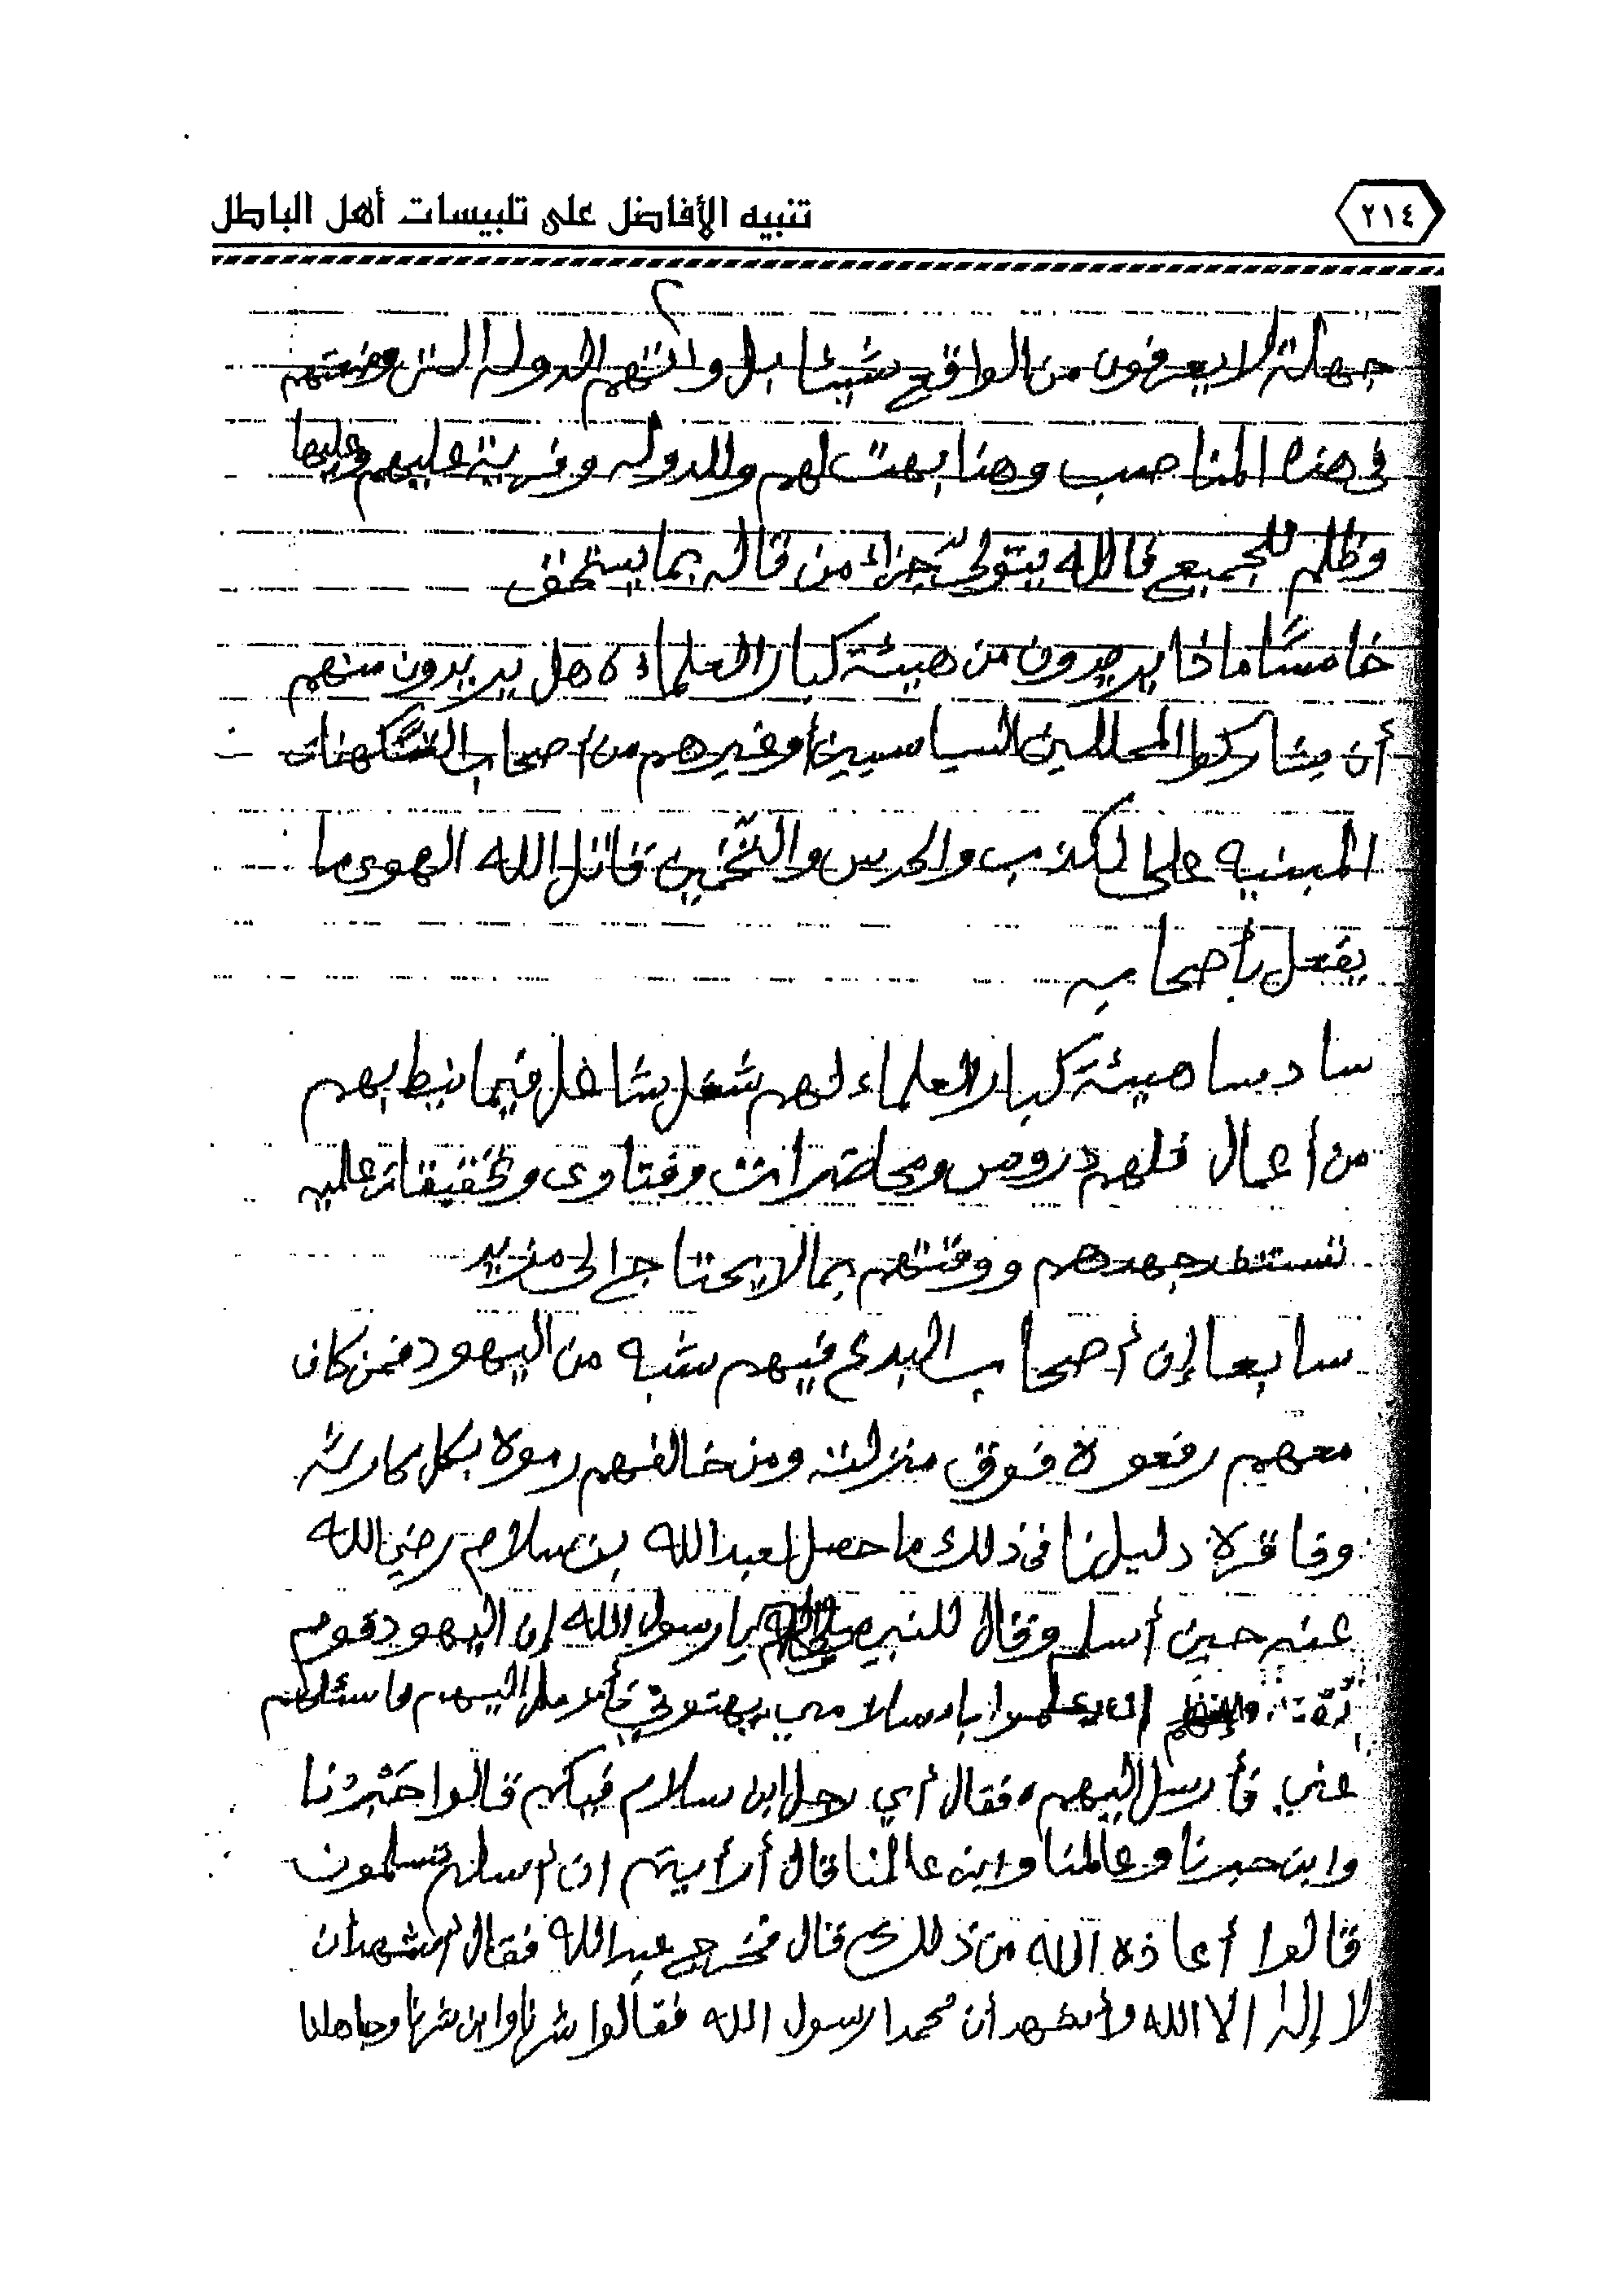 ٢١٤
تنبيه الأفاضل على تلبيسات أهل الباطل
٢
جهلة لا يعرفون من الواقع شيئا بل واتهم الدوله التي وضعتهم
في هذه المناصب وهذا بهت لهم وللدوله وفرية عليهم وعليها
وظلم للجميع فالله يتولى جزاء من قاله بما يستحق
خامسًا ماذا يريدون من هيئة كبار العلماء هل يريدون منهم
أن يشاركوا المحللين السياسيين وغيرهم من أصحاب التكهنات
المبنيه على الكذب والحدس والتخمين قاتل الله الهوى ما
يفعل بأصحابه
سادسا هيئة كبار العلماء لهم شغل شاغل فيما نيط بهم
من أعمال فلهم دروس ومحاضرات وفتاوى وتحقيقات علميه
تستنفد جهدهم ووقتهم بما لا يحتاج إلى مزيد
سابعا إن أصحاب البدع فيهم شبه من اليهود فمن كان
معهم رفعوه فوق منزلته ومن خالفهم رموه بكل كارثه
وفاقرة دليلنا في ذلك ما حصل لعبدالله بن سلام رضي الله
عنه حين أسلم وقال للنبي صلى الله يا رسول الله إن اليهود قوم
بُهت إن يعلموا بإسلامي يبهتوني فأرسل إليهم فاسئلهم
عني فأرسل إليهم فقال أي رجل ابن سلام فيكم قالوا حَبْرُنا
وابن حبرنا وعالمنا وابن عالمنا قال أرأيتم ان أسلم تسلمون
قالوا أعاذه الله من ذلك قال فخرج عبدالله فقال أشهد أن
لا إله الا الله وأشهد أن محمدا رسول الله فقالوا شرنا وابن شرنا وجاهلنا